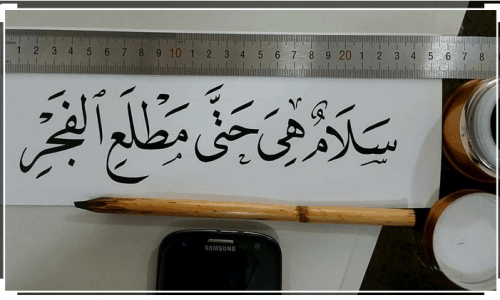 1 2 3 4 5 6 7 8 9 10 1 2 3 4 5 6 7 8 9 20 1 2 3 4 5 6 7 8
سَلَامٌ هِىَ حَتَّى مَطْلَعِ ٱلْفَجْرِ
SAMSUNG